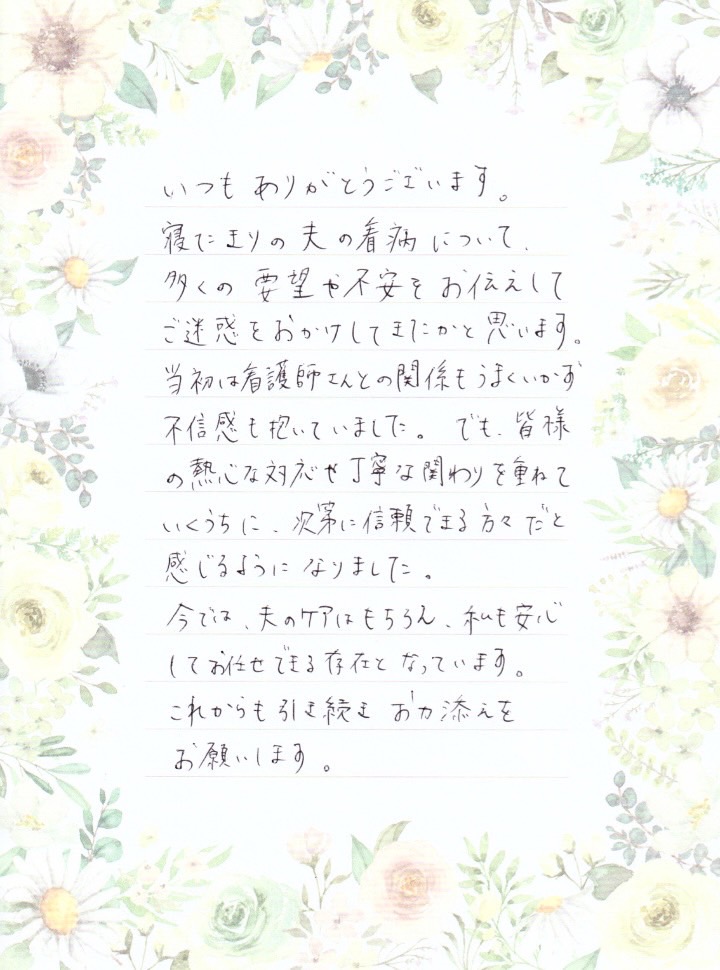 いつもありがとうございます。
寝たきりの夫の看病について、
多くの要望や不安をお伝えして
ご迷惑をおかけしてきたかと思います。
当初は看護師さんとの関係もうまくいかず
不信感も抱いていました。でも、皆様
の熱心な対応や丁寧な関わりを重ねて
いくうちに、次第に信頼できる方々だと
感じるようになりました。
今では、夫のケアはもちろん、私も安心
してお任せできる存在となっています。
これからも引き続きお力添えを
お願いします。